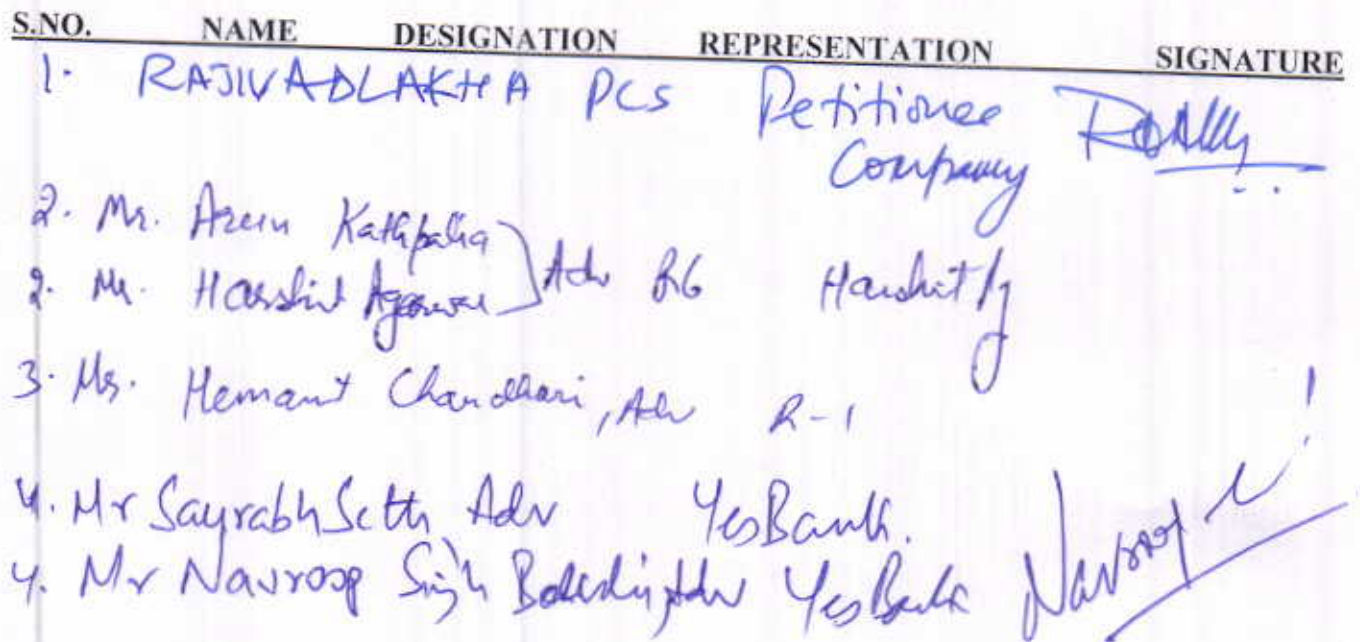 S.NO. NAME DESIGNATION REPRESENTATION SIGNATURE
1. RAJIV ADLAKHA PCS Petitioner
Company
2. Mr. Arun Kathpalia
2. Mr. Harshit Agarwal Adv R6 Harshit Ag
3. Mr. Hemant Chaudhari, Adv R-1
4. Mr Saurabh Seth Adv Yes Bank.
4. Mr Navroop Singh Adv Yes Bank Navroop